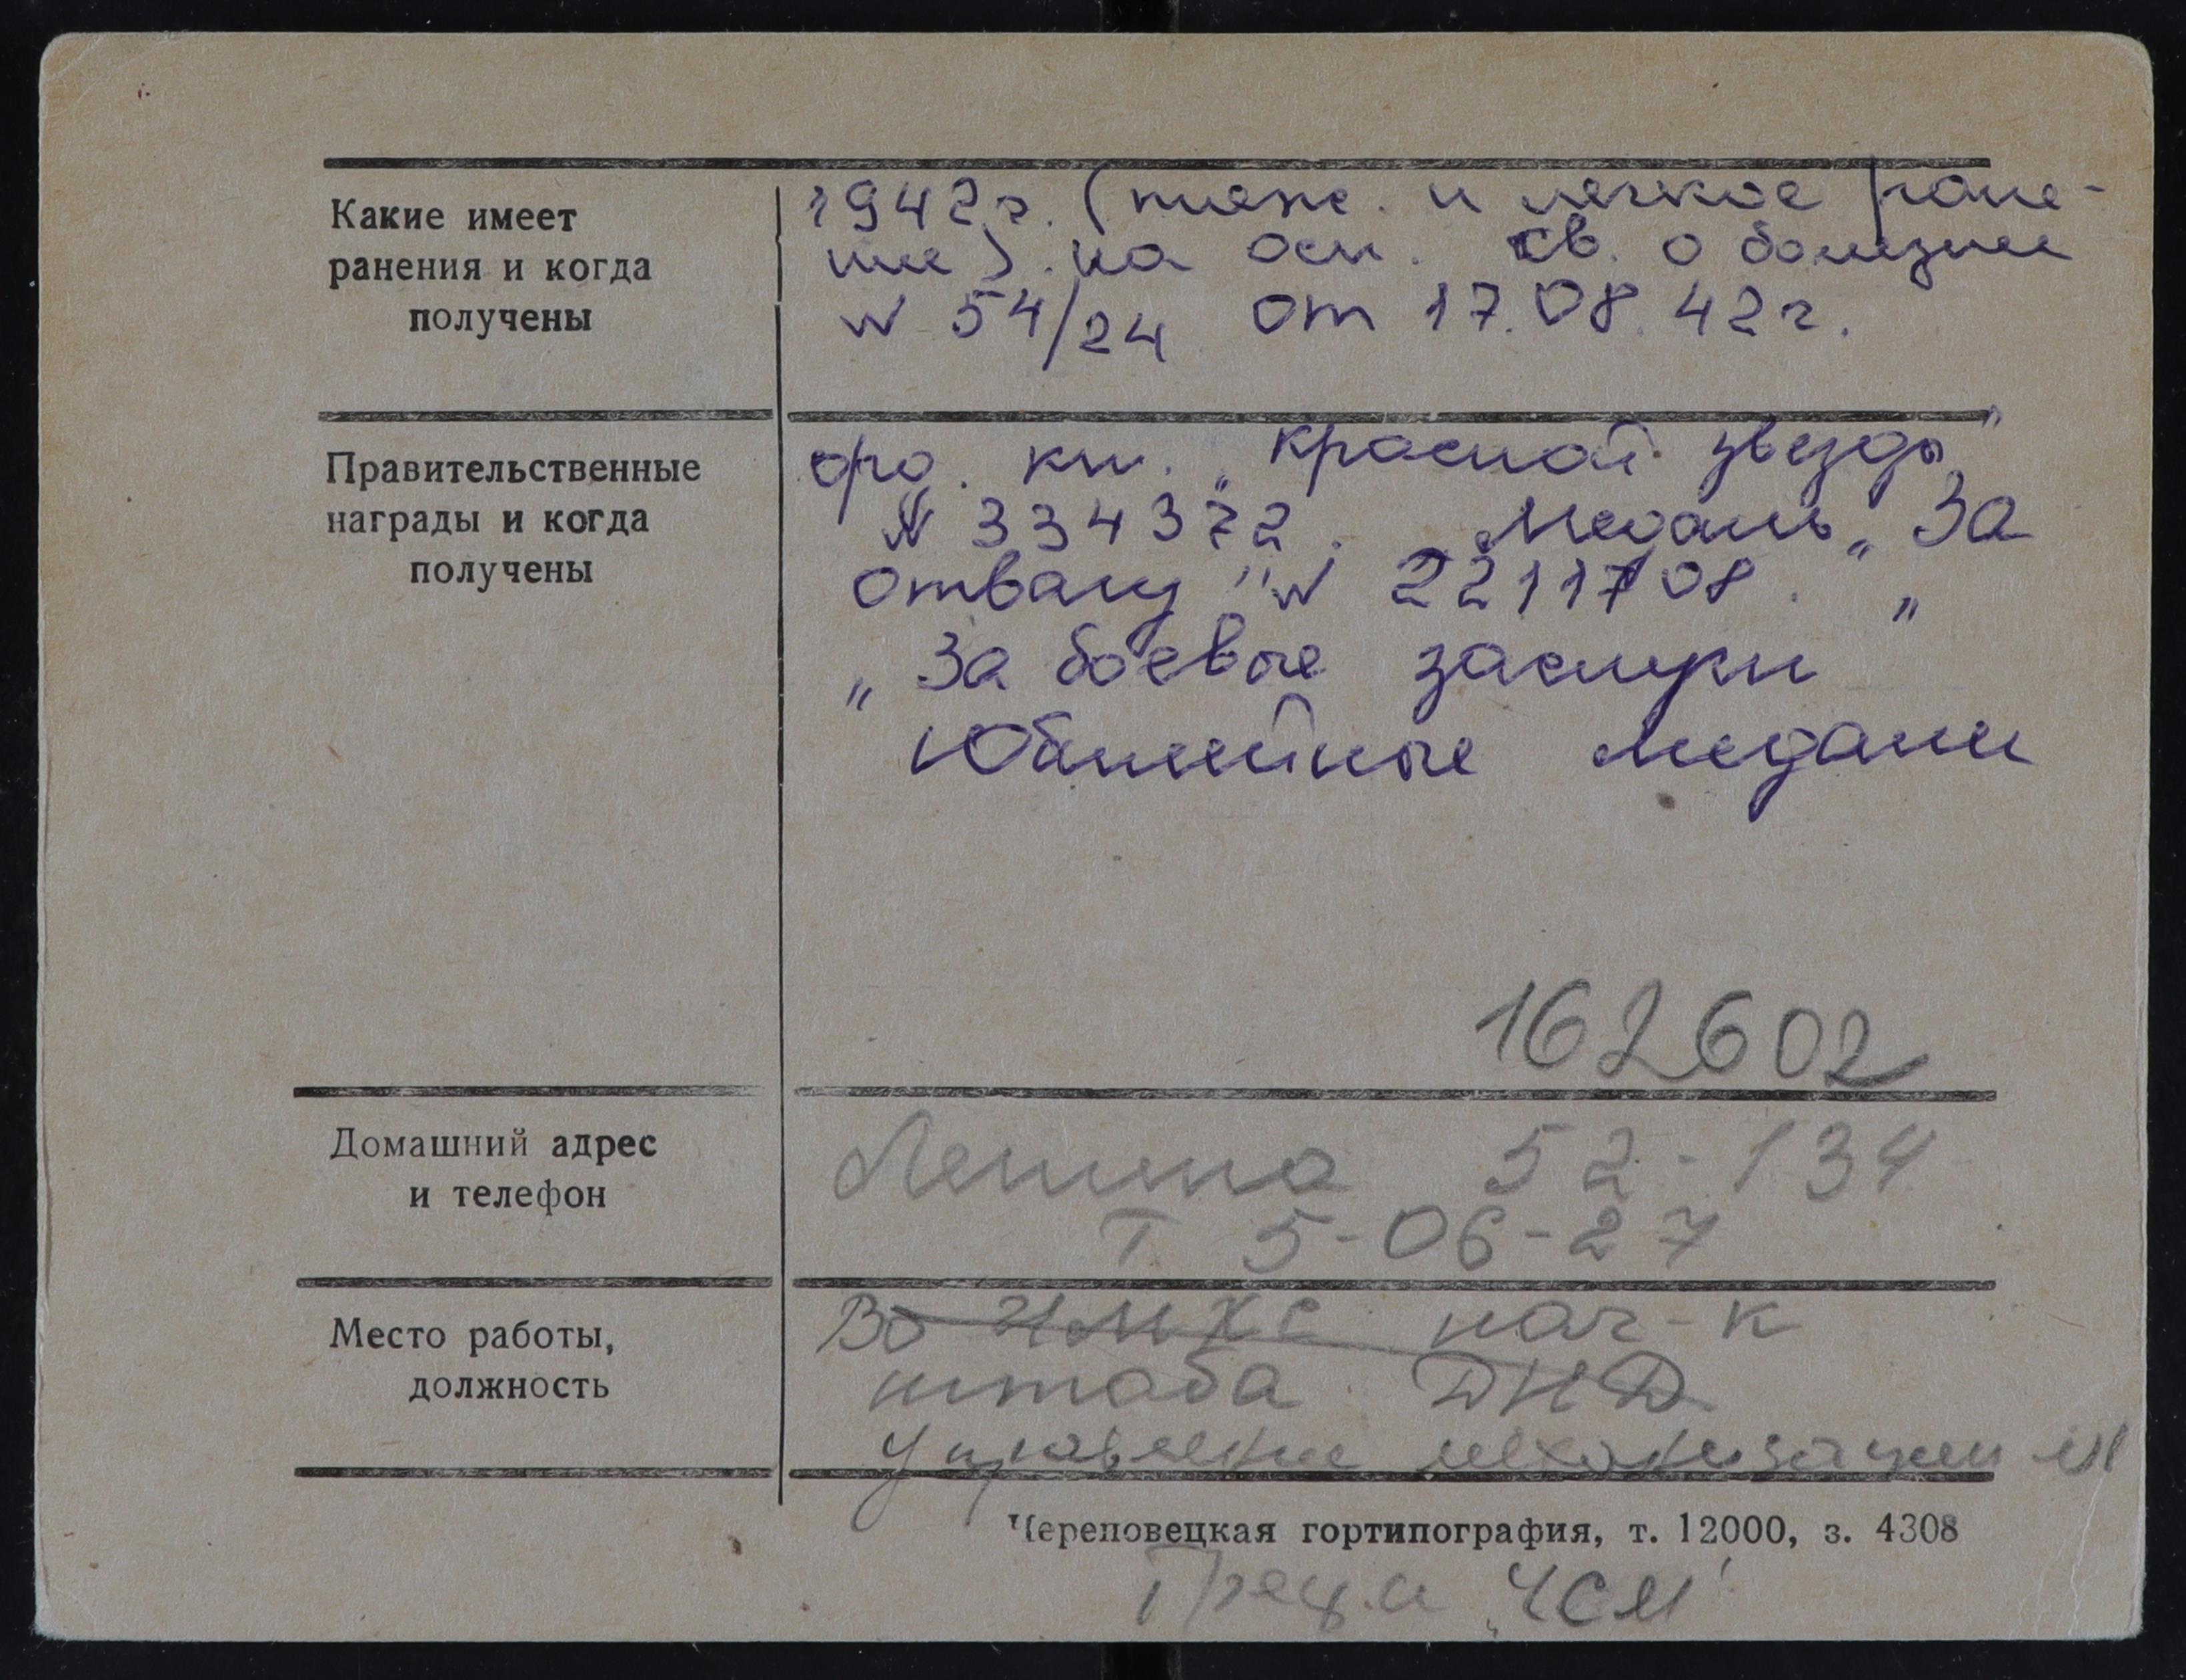 Какие имеет
ранения и когда
получены
1942г. (тяж. и легкое ране-
ние). на осн. св. о болезни
N 54/24 от 17.08.42г.
Правительственные
награды и когда
получены
орд. кн. „Красной звезды”
N 334372. Медаль „За
отвагу” N 2211708. „
„За боевые заслуги
Юбилейные медали
162602
Домашний адрес
и телефон
Ленина 52-134
Т. 5-06-27
Место работы,
должность
нач-к
штаба ДНД
Управление механизации
Череповецкая гортипография, т. 12000, з. 4308
„ЧСМ”